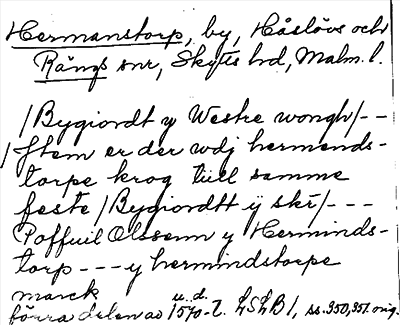 Hermanstorp, by, Håslövs och
Rängs snr, Skytts hd, Malm. l.
/Bygiordt y Westre wongh/--
/Jtem er der wdj hermends-
torpe krog tüll samme
feste /Bygiordtt ÿ skr/---
Poffuil Olssenn y Herminds-
torp --- y hermindstorpe
marck
förra delen av 1570-t. u.d. LSLB 1, ss. 350, 351. orig.